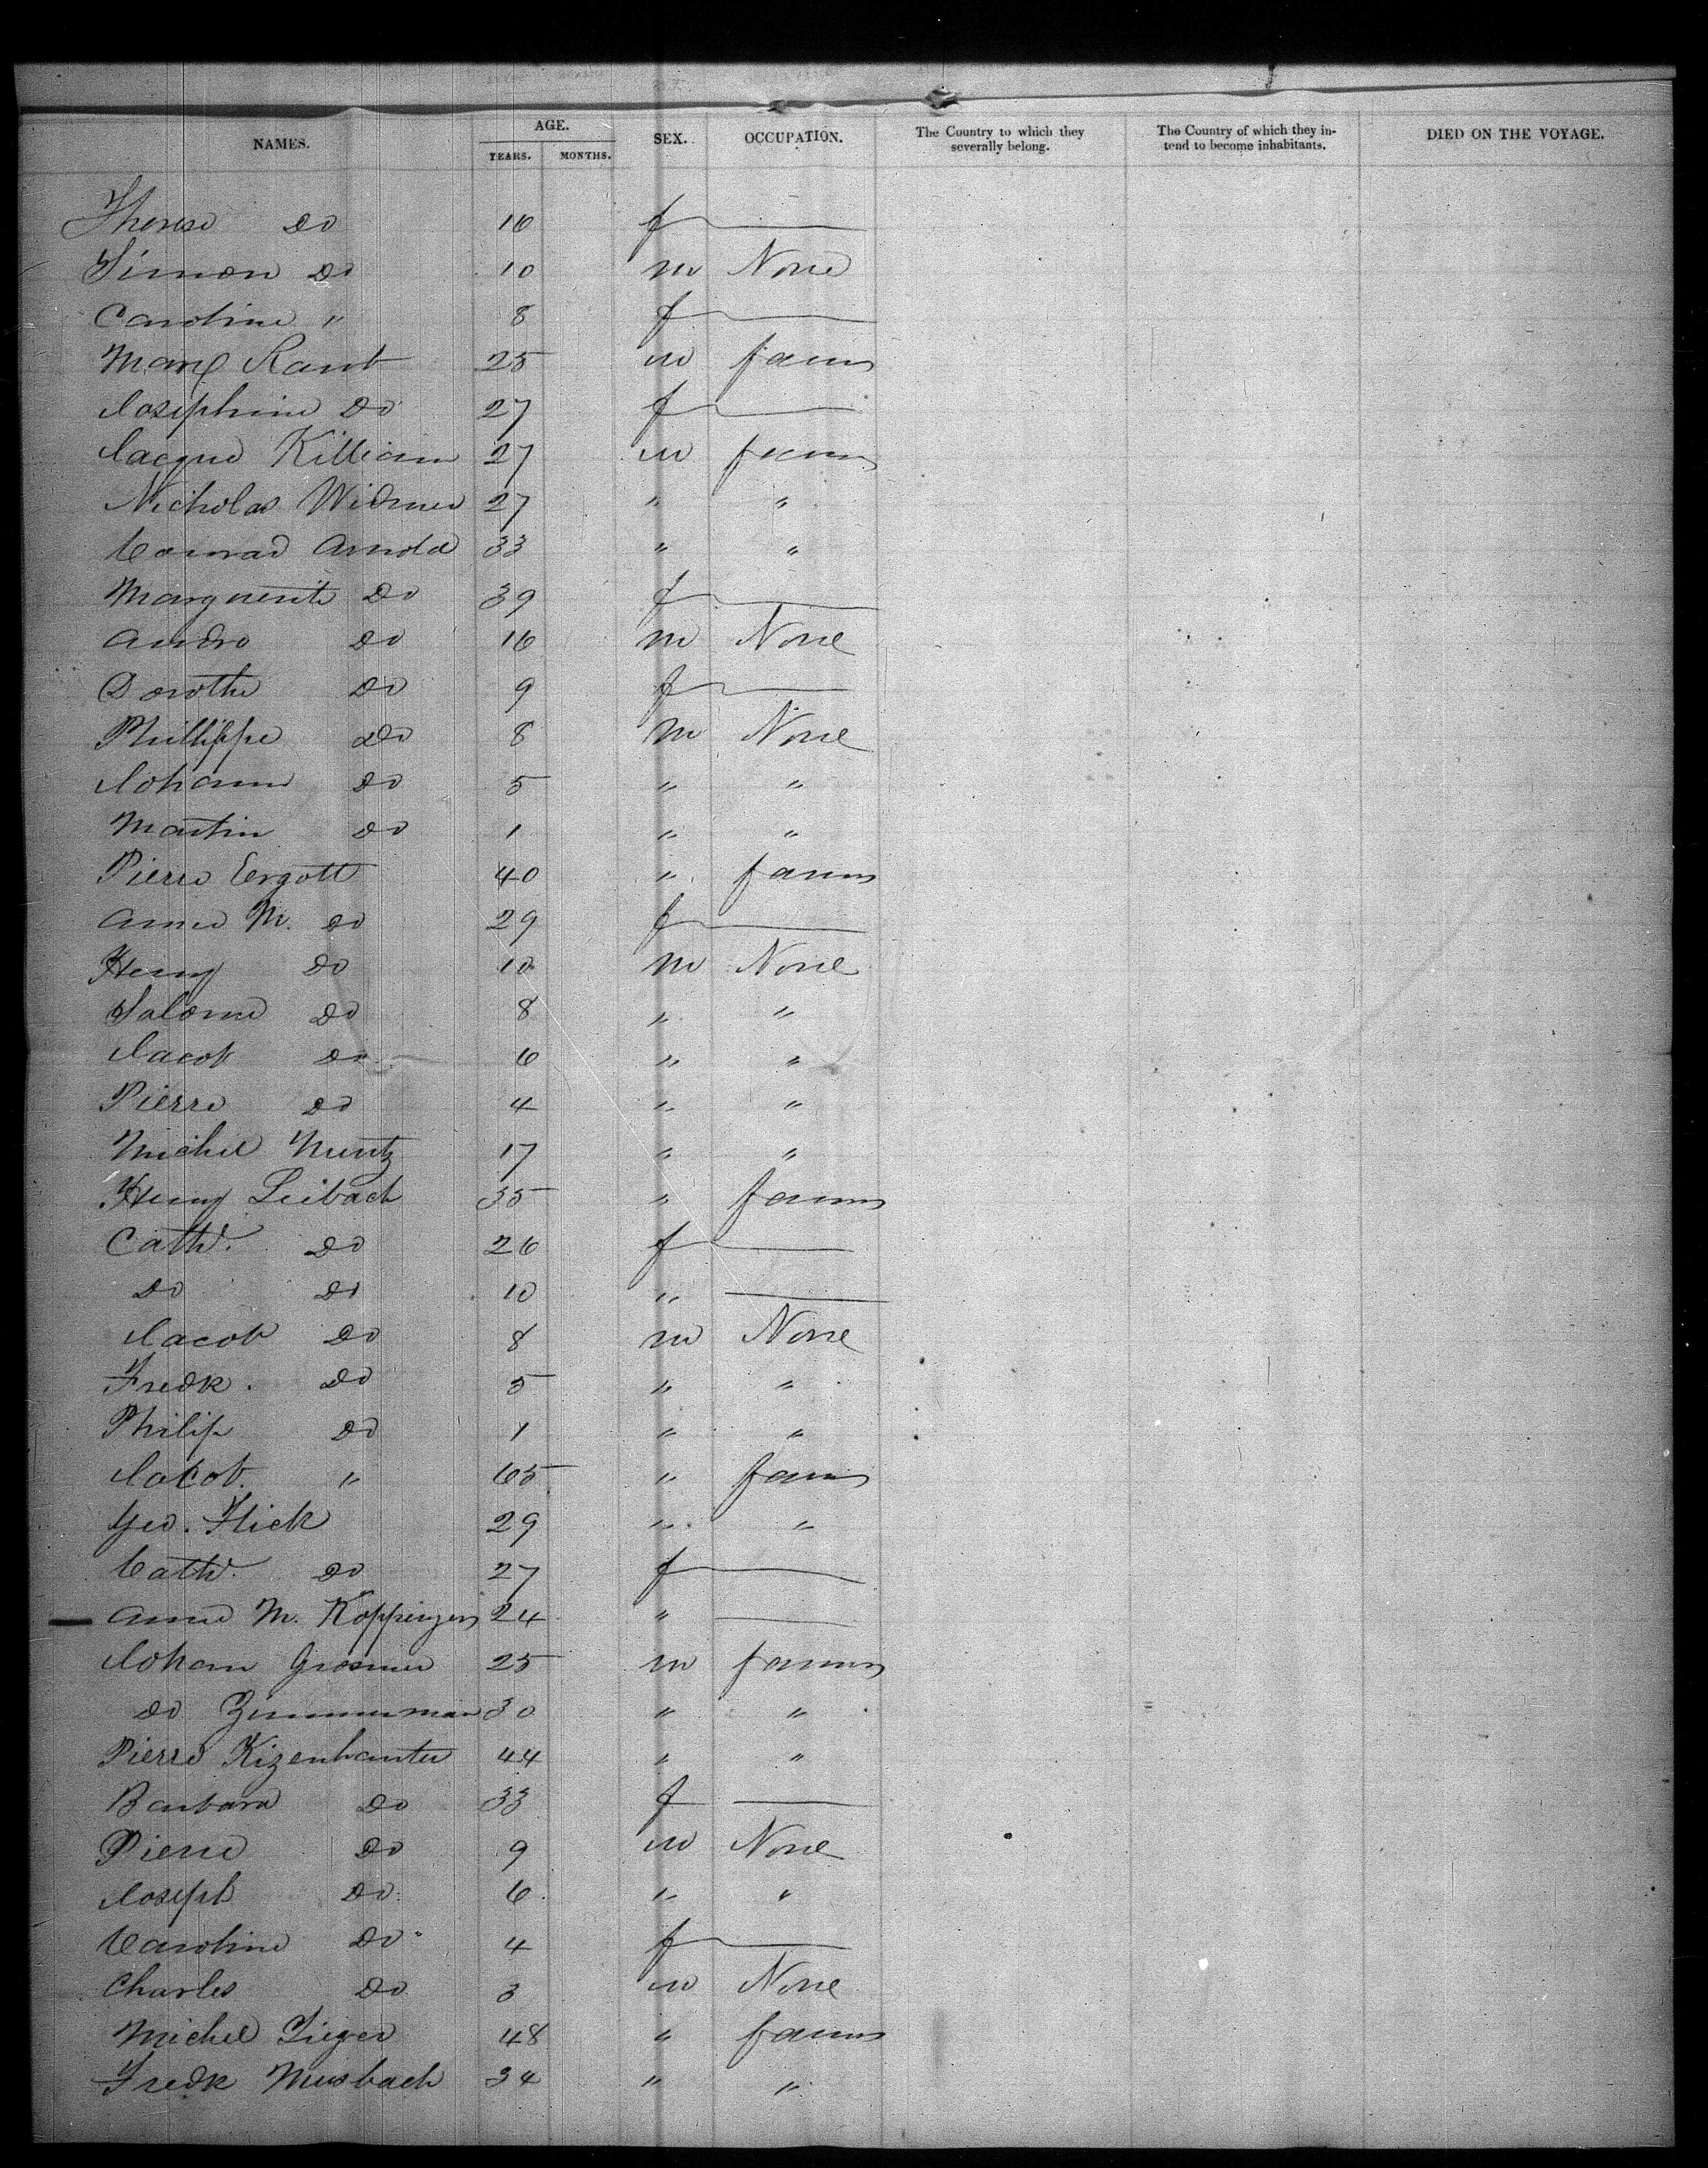 NAMES. AGE. SEX. OCCUPATION. The Country to which they severally belong. The Country of which they intend to become inhabitants. DIED ON THE VOYAGE.
YEARS. MONTHS.
Therese Do 16 f
Simon Do 10 m None
Caroline " 8 f
Marx Raub 25 m farmer
Josephine Do 27 f
Jacque Killiam 27 m farmer
Nicholas Widmer 27 " "
Conrad Arnold 33 " "
Marguerite Do 39 f
Andre Do 16 m None
Dorothe Do 9 f
Phillippe Do 8 m None
Johann Do 5 " "
Martin Do 1 " "
Pierre Ergott 40 " farmer
Anne M. Do 29 f
Henry Do 10 m None
Salome Do 8 " "
Jacob Do 6 " "
Pierre Do 4 " "
Michel Muntz 17 " "
Henry Leibach 35 " farmer
Cathe. Do 26 f
Do Do 10 "
Jacob Do 8 m None
Fredk. Do 5 " "
Philip Do 1 " "
Jacob. " 65 " farmer
Geo. Flick 29 " "
Cathe. Do 27 f
Anne M. 24 "
Johann 25 m farmer
Do Zimmerman 30 " "
Pierre 44 " "
Barbara Do 33 f
Pierre Do 9 m None
Joseph Do 6 " "
Caroline Do 4 f
Charles Do 3 m None
Michel 48 " farmer
Fredk Musbach 34 " "